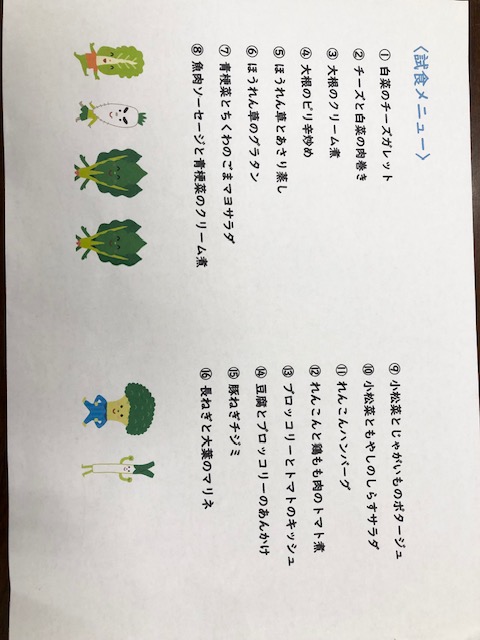 〈試食メニュー〉
① 白菜のチーズガレット
② チーズと白菜の肉巻き
③ 大根のクリーム煮
④ 大根のピリ辛炒め
⑤ ほうれん草とあさり蒸し
⑥ ほうれん草のグラタン
⑦ 青梗菜とちくわのごまマヨサラダ
⑧ 魚肉ソーセージと青梗菜のクリーム煮
⑨ 小松菜とじゃがいものポタージュ
⑩ 小松菜ともやしのしらすサラダ
⑪ れんこんハンバーグ
⑫ れんこんと鶏もも肉のトマト煮
⑬ ブロッコリーとトマトのキッシュ
⑭ 豆腐とブロッコリーのあんかけ
⑮ 豚ねぎチヂミ
⑯ 長ねぎと大葉のマリネ